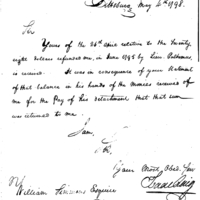 Pittsburg May 4th 1798.
Sir
Yours of the 26th relative to the Twenty
eight Dollars refunded me, in June 1795 by Lieu.
is received. It was in consequence of your Statement
of that balance in his hands of the monies received of
me for the Pay of his detachment that that sum
was returned to me.
I am,
Sir
Your Most Obed. Ser
William Simmons Esquire